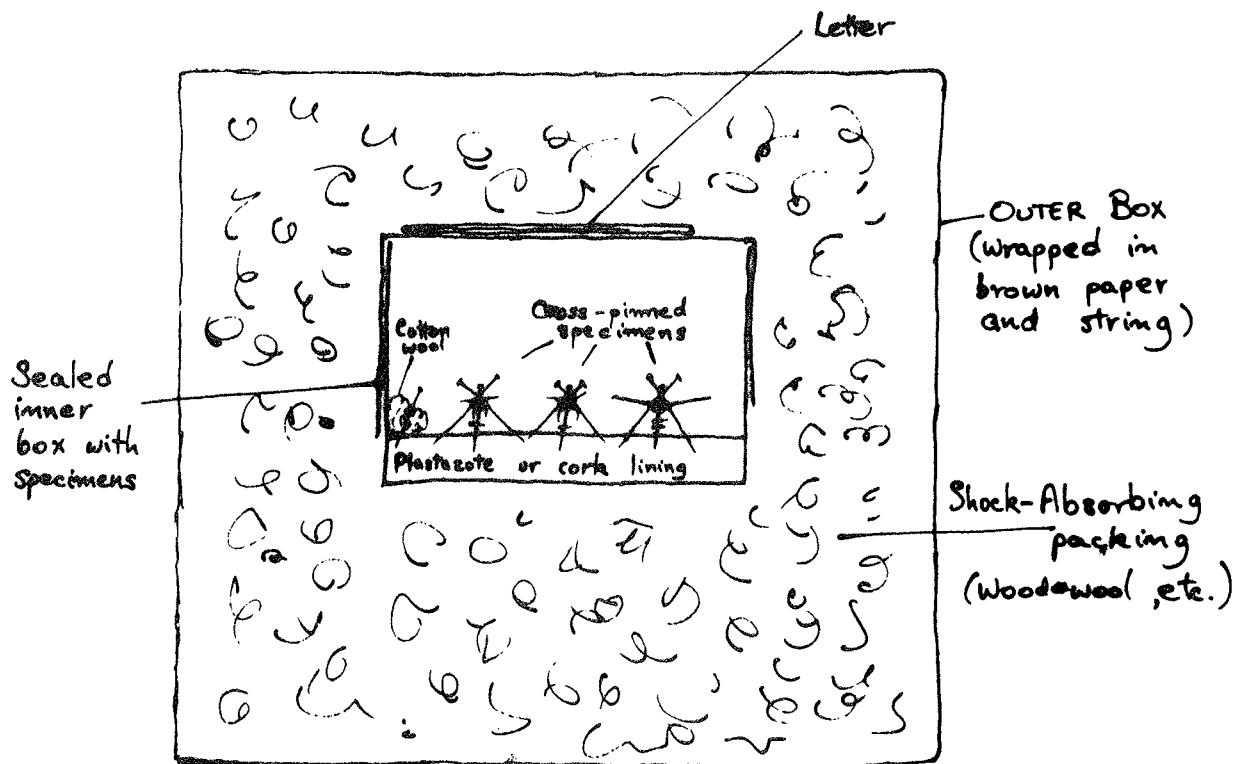 Letter
OUTER BOX
(wrapped in
brown paper
and string)
Cross-pinned
specimens
Cotton
wool
Sealed
inner
box with
specimens
Plastazote or cork lining
Shock-Absorbing
packing
(wood-wool, etc.)